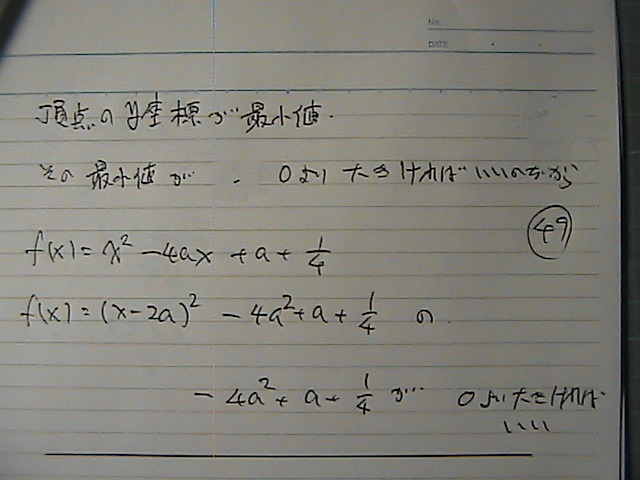 No.
DATE
頂点のy座標が最小値.
その最小値が、0より大きければいいのだから
49
f(x)=x² -4ax +a+ 1/4
f(x)=(x-2a)² -4a²+a+ 1/4 の
-4a²+a+ 1/4 が 0より大きければ
いい